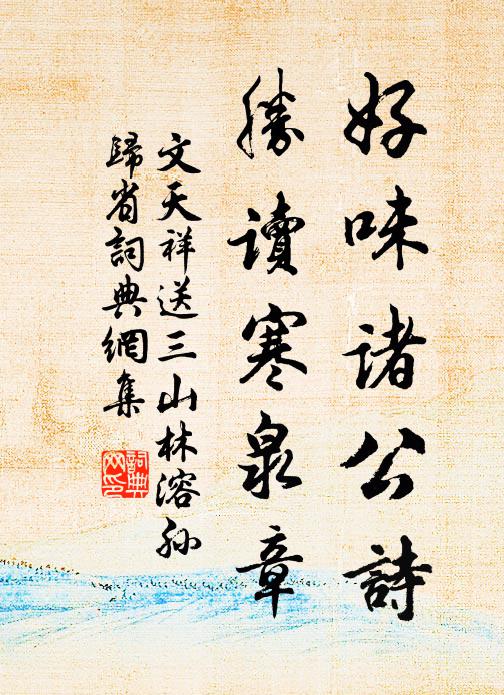 好味諸公詩
勝讀寒泉章
文天祥送三山林溶孙
歸省詞典網集
詞典网印